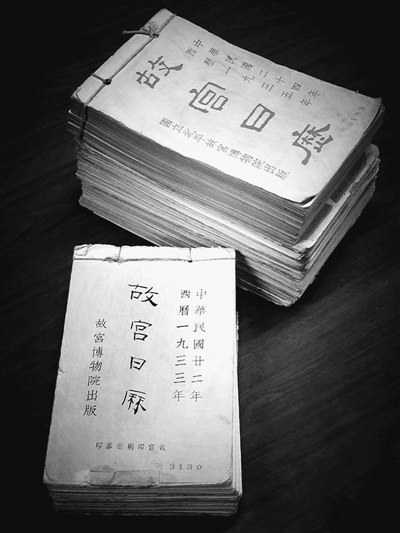 中華民國二十四年
西曆一九三五年
故宮日曆
國立北平故宮博物院出版
中華民國廿二年
西曆一九三三年
故宮日曆
故宮博物院出版
故宮印刷所承印
3130